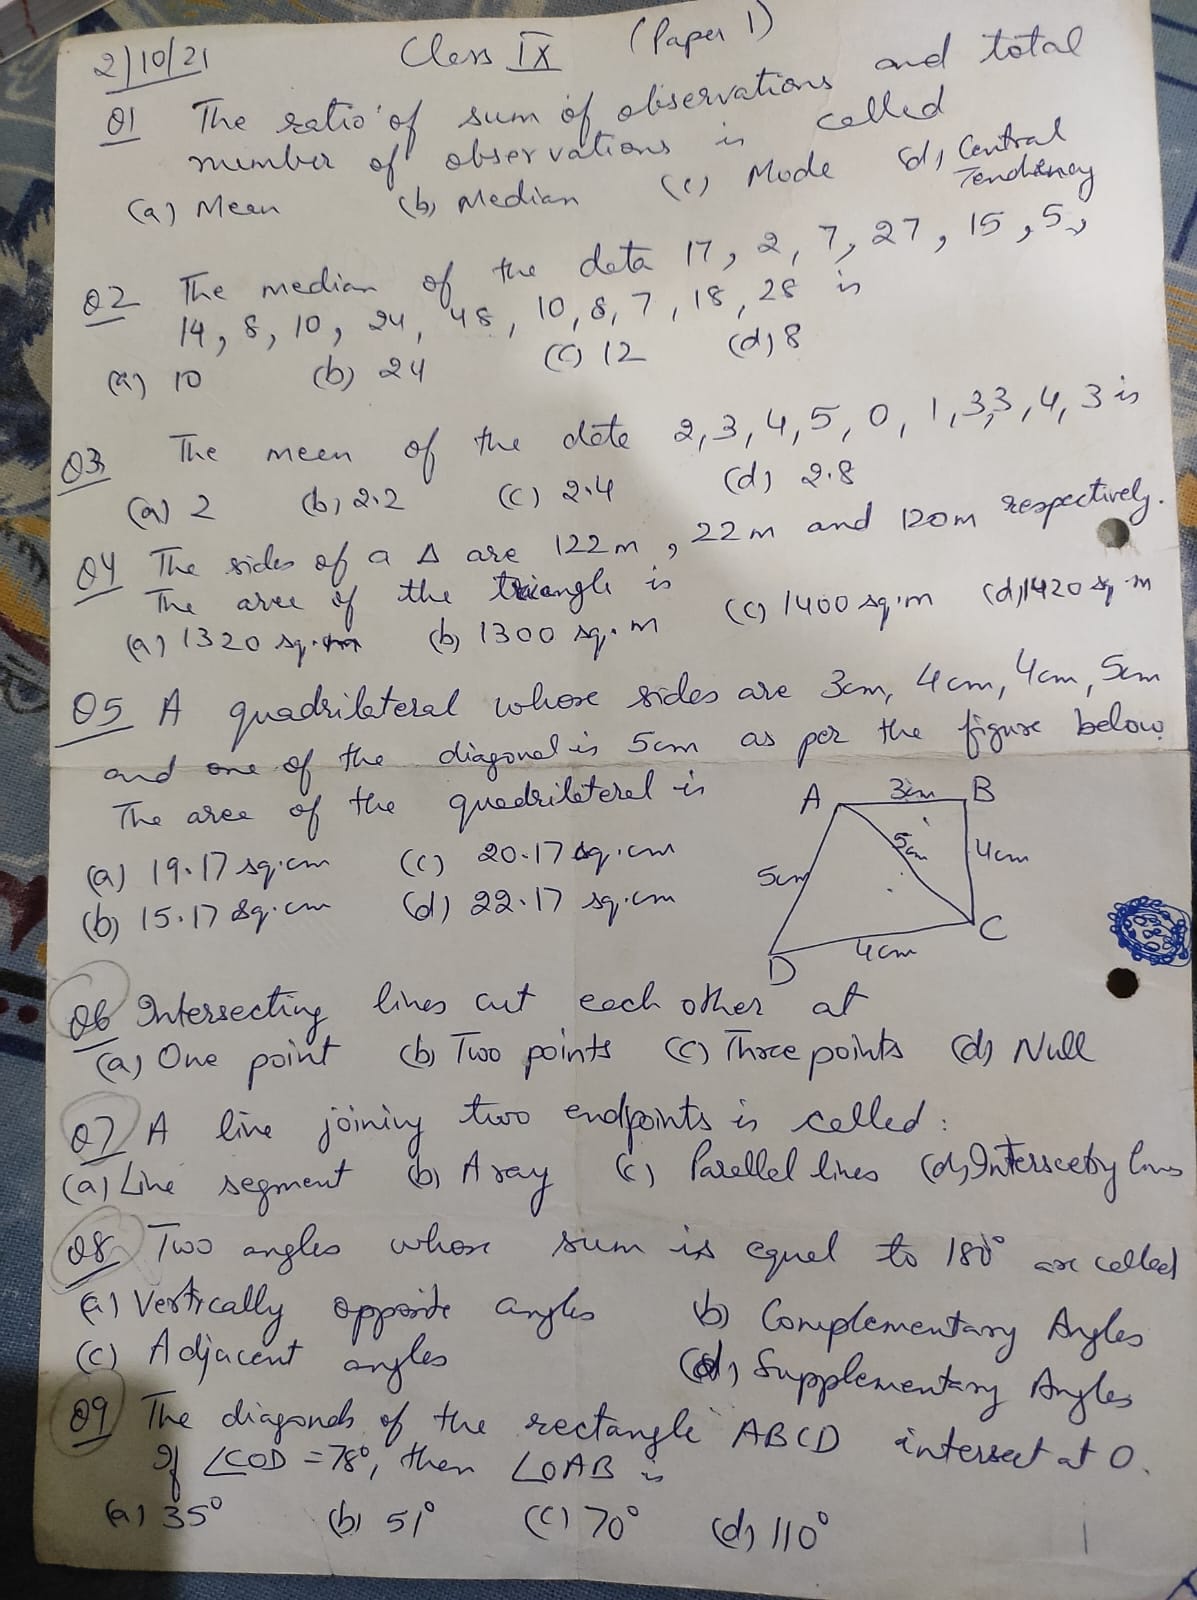 2/10/21 Class IX (Paper 1)
Q1 The ratio of sum of observations and total
number of observations is called
(a) Mean (b) Median (c) Mode (d) Central
Tendency
Q2 The median of the data 17, 2, 7, 27, 15, 5,
14, 8, 10, 24, 48, 10, 8, 7, 18, 28 is
(a) 10 (b) 24 (c) 12 (d) 8
Q3 The mean of the data 2, 3, 4, 5, 0, 1, 3, 3, 4, 3 is
(a) 2 (b) 2.2 (c) 2.4 (d) 2.8
Q4 The sides of a Δ are 122 m, 22 m and 120 m respectively.
The area of the triangle is
(a) 1320 sq.m (b) 1300 sq.m (c) 1400 sq.m (d) 1420 sq.m
Q5 A quadrilateral whose sides are 3cm, 4cm, 4cm, 5cm
and one of the diagonal is 5cm as per the figure below.
The area of the quadrilateral is
(a) 19.17 sq.cm (c) 20.17 sq.cm
(b) 15.17 sq.cm (d) 22.17 sq.cm
A 3cm B
5cm 5cm 4cm
D 4cm C
Q6 Intersecting lines cut each other at
(a) One point (b) Two points (c) Three points (d) Null
Q7 A line joining two endpoints is called:
(a) Line segment (b) A ray (c) Parellel lines (d) Intersecting lines
Q8 Two angles whose sum is equal to 180° are called
(a) Vertically opposite angles b) Complementary Angles
(c) Adjacent angles (d) Supplementary Angles
Q9 The diagonals of the rectangle ABCD intersect at O.
If ∠COD = 78°, then ∠OAB is
(a) 35° (b) 51° (c) 70° (d) 110°
1